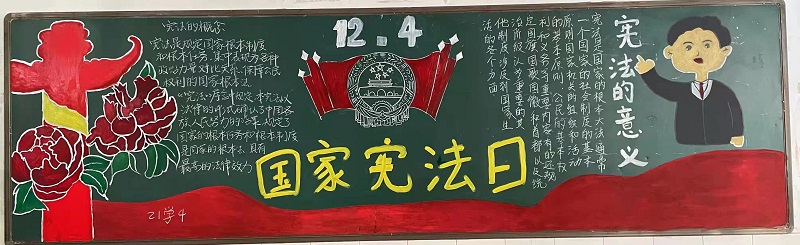 宪法的概念
宪法是规定国家根本制度
和根本任务,集中表现各种
政治力量对比关系、保障公民
权利的国家根本法
国家的根本任务和根本制度
是国家的根本法,具有
最高的法律效力
21学4
12.4
国家宪法日
宪法是国家的根本大法,通常
一个国家的社会制度的基本
原则国家机关的组织和活动
的基本原则,公民的基本权
利和义务等重要内容有的还规
定国旗国歌国徽和首都以及统
治阶级认为重要的其
他制度涉及到国家生
活的各个方面
宪法的意义